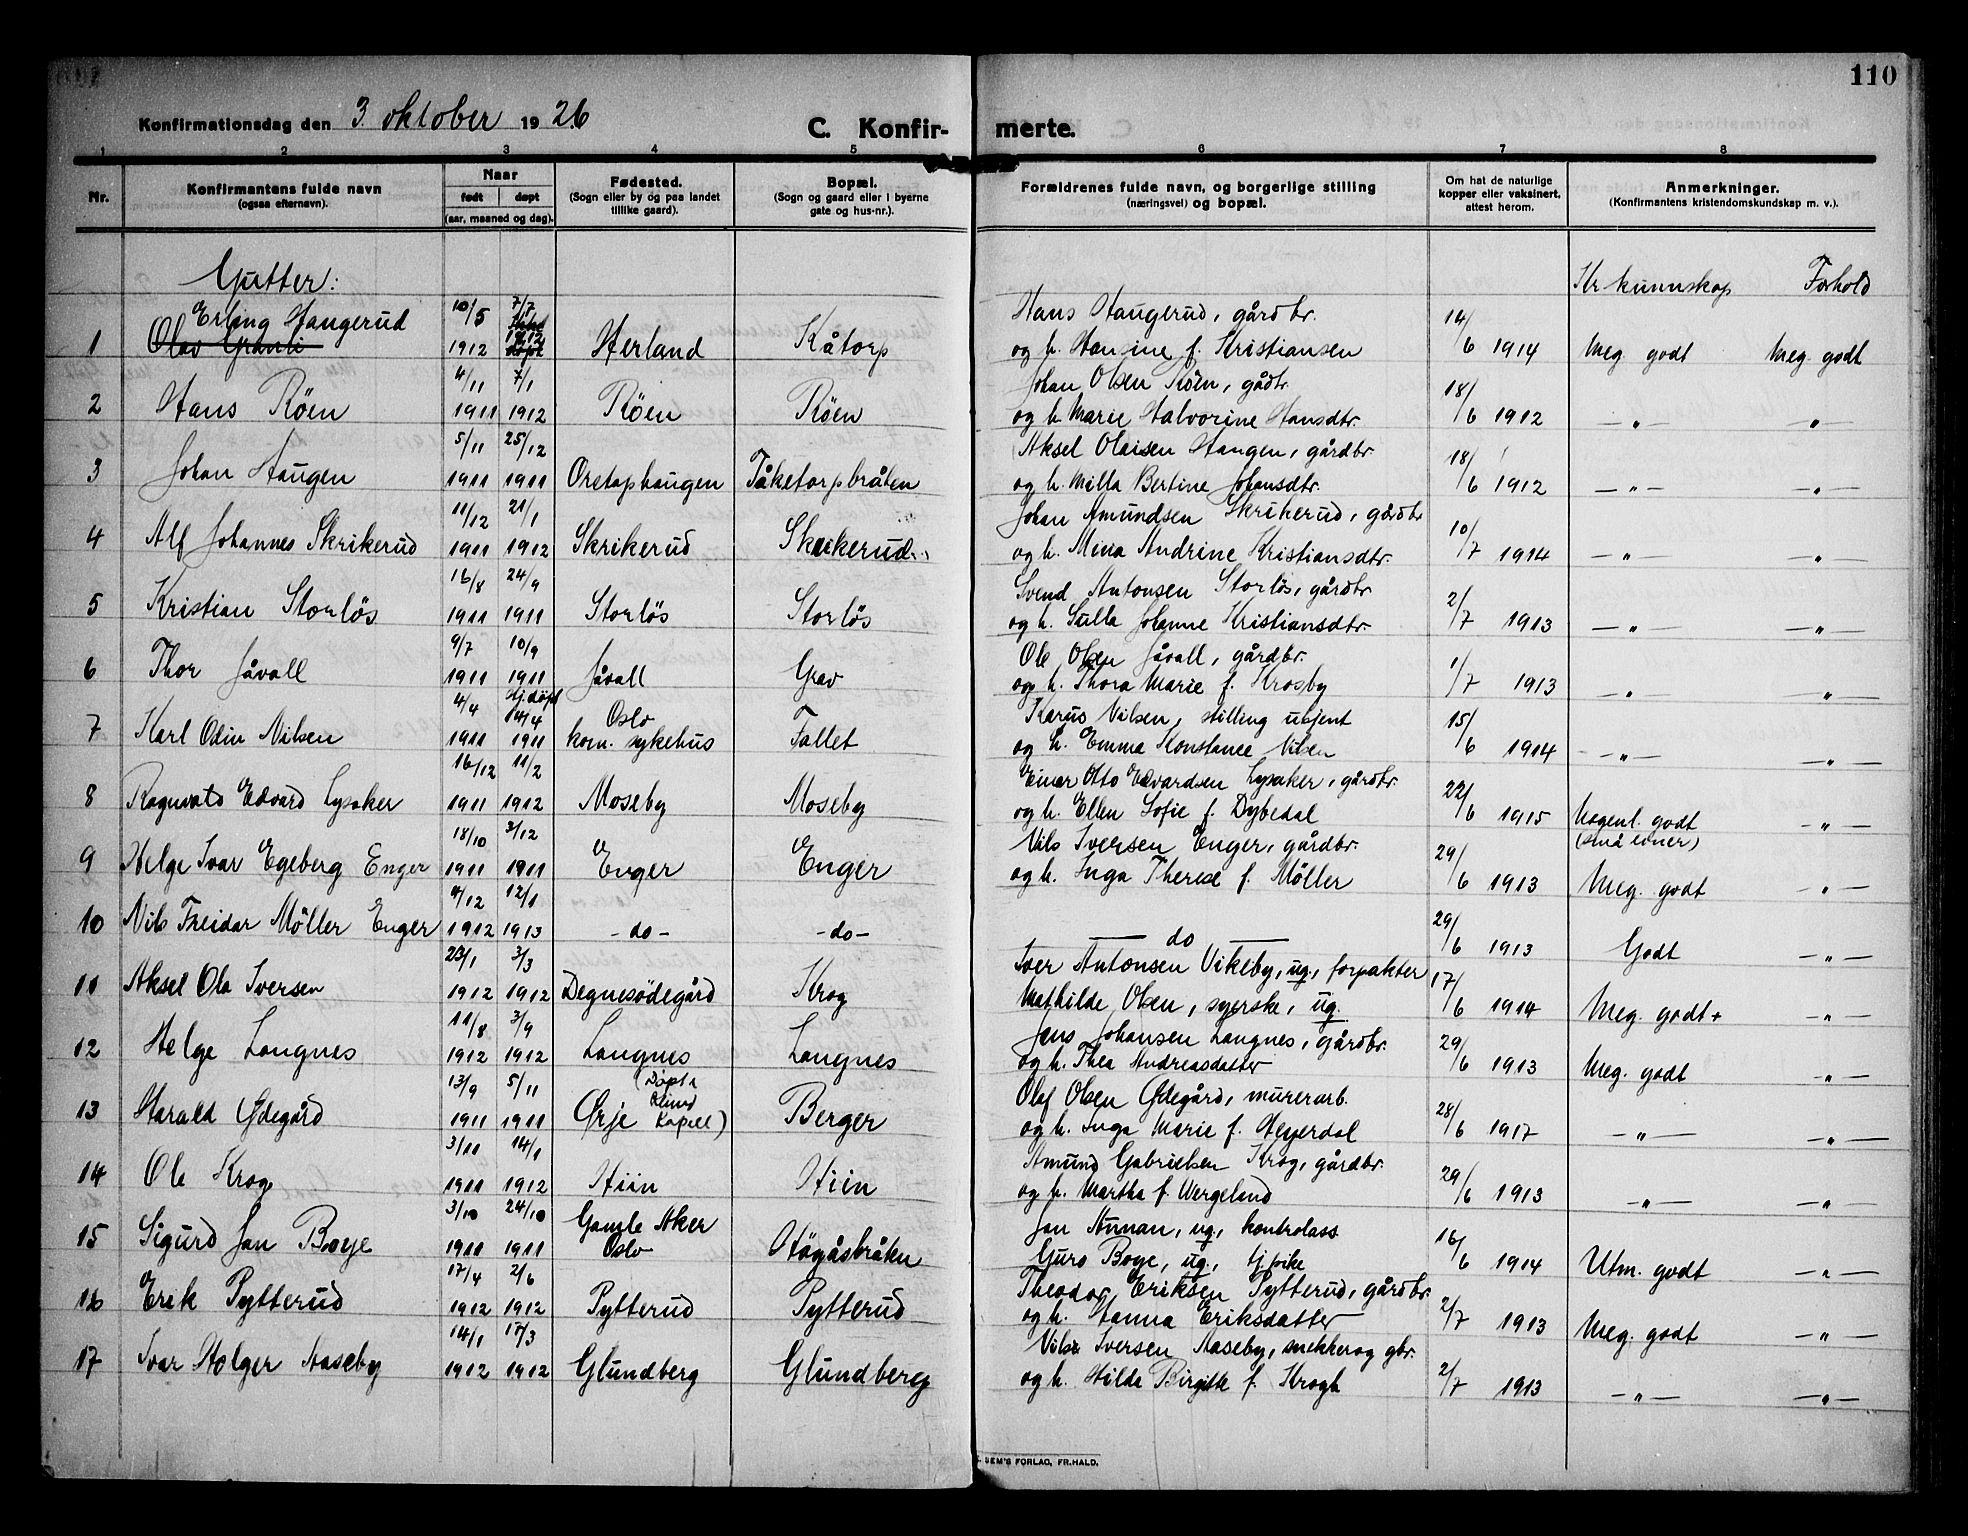 110
Konfirmationsdag den 3. oktober 1926 C. Konfirmerte.
1 2 3 4 5 6 7 8
Nr. Konfirmantens fulde navn (ogsaa efternavn). Naar født døpt (aar, maaned og dag). Fødested. (Sogn eller by og paa landet tillike gaard). Bopæl. (Sogn og gaard eller i byerne gate og hus-nr.). Forældrenes fulde navn, og borgerlige stilling (næringsvei) og bopæl. Om hat de naturlige kopper eller vaksinert, attest herom. Anmerkninger. (Konfirmantens kristendomskundskap m. v.).
Gutter: Kr kunnskap Forhold
Erling Haugerud 10/5 7/7 Hans Haugerud, gårdbr. 14/6
1 Olav Granli 1912 1912 Herland Kåtorp og h. Hansine f. Kristiansen 1914 Meg. godt Meg. godt
4/11 7/1 Johan Olsen Röen, gådbr. 18/6
2 Hans Röen 1911 1912 Röen Röen og h. Marie Halvorine Hansdtr. 1912 —„— —„—
5/11 25/12 Aksel Olaisen Haugen, gårdbr 18/6
3 Johan Haugen 1911 1911 Oretophaugen Tåketorpbråten og h. Milla Bertine Johansdtr. 1912 —„— —„—
11/12 21/1 Johan Amundsen Skrikerud, gårdbr 10/7
4 Alf Johannes Skrikerud 1911 1912 Skrikerud Skrikerud og h. Mina Andrine Kristiansdtr. 1914 —„— —„—
16/8 24/9 Svend Antonsen Storlös, gårdbr 2/7
5 Kristian Storlös 1911 1911 Storlös Storlös og h. Sulla Johanne Kristiansdtr. 1913 —„— —„—
9/7 10/9 Ole Olsen Jåvall, gårdbr. 1/7
6 Thor Jåvall 1911 1911 Jåvall Grav og h. Thora Marie f. Krosby 1913 —„— —„—
4/4 Hj.döpt 14/4 Oslo Karus Nilsen, stilling ubjent 15/6
7 Karl Odin Nilsen 1911 1911 kom. sykehus Fallet og h. Emma Konstance Nilsen 1914 —„— —„—
16/12 11/2 Einar Otto Edvardsen Lysaker, gårdbr. 22/6
8 Ragnvald Edvard Lysaker 1911 1912 Moseby Moseby og h. Ellen Sofie f. Dybedal 1915 Nogenl. godt (små evner) —„—
18/10 3/12 Nils Iversen Enger, gårdbr. 29/6
9 Helge Ivar Egeberg Enger 1911 1911 Enger Enger og h. Inga Therese f. Möller 1913 Meg. godt —„—
4/12 12/1 29/6
10 Nils Freidar Möller Enger 1912 1913 -do- -do- — do — 1913 Godt —„—
23/1 3/3 Iver Antonsen Vikeby, ug., forpakter 17/6
11 Aksel Ola Iversen 1912 1912 Degnesödegård Krog Mathilde Olsen, syerske, ug. 1914 Meg. godt+ —„—
11/8 3/9 Jens Johansen Langnes, gårdbr. 29/6
12 Helge Langnes 1912 1912 Langnes Langnes og h. Thea Andreasdatter 1913 Meg. godt —„—
13/9 5/11 (Döpt i Klund Kapell) Olaf Olsen Ödegård, murerarb. 28/6
13 Harald Ödegård 1911 1911 Örje Berger og h. Inga Marie f. Heyerdal 1917 —„— —„—
3/11 14/1 Amund Gabrielsen Krog, gårdbr. 29/6
14 Ole Krog 1911 1912 Hiin Hiin og h. Martha f. Wergeland 1913 —„— —„—
3/10 24/10 Gamle Aker Jan Aunan, ug., kontrolass 16/6
15 Sigurd Jan Boye 1911 1911 Oslo Högåsbråten Guro Boye, ug., tj.pike 1914 Utm. godt —„—
17/4 2/6 Theodor Eriksen Pytterud, gårdbr. 2/7
16 Erik Pytterud 1912 1912 Pytterud Pytterud og h. Hanna Eriksdatter 1913 Meg. godt —„—
14/1 17/3 Nils Iversen Aaseby, snekker og gbr. 2/7
17 Ivar Holger Aaseby 1912 1912 Glundberg Glundberg og h. Hilda Birgitte f. Krogh 1913 —„— —„—
SEM'S FORLAG, FR.HALD.